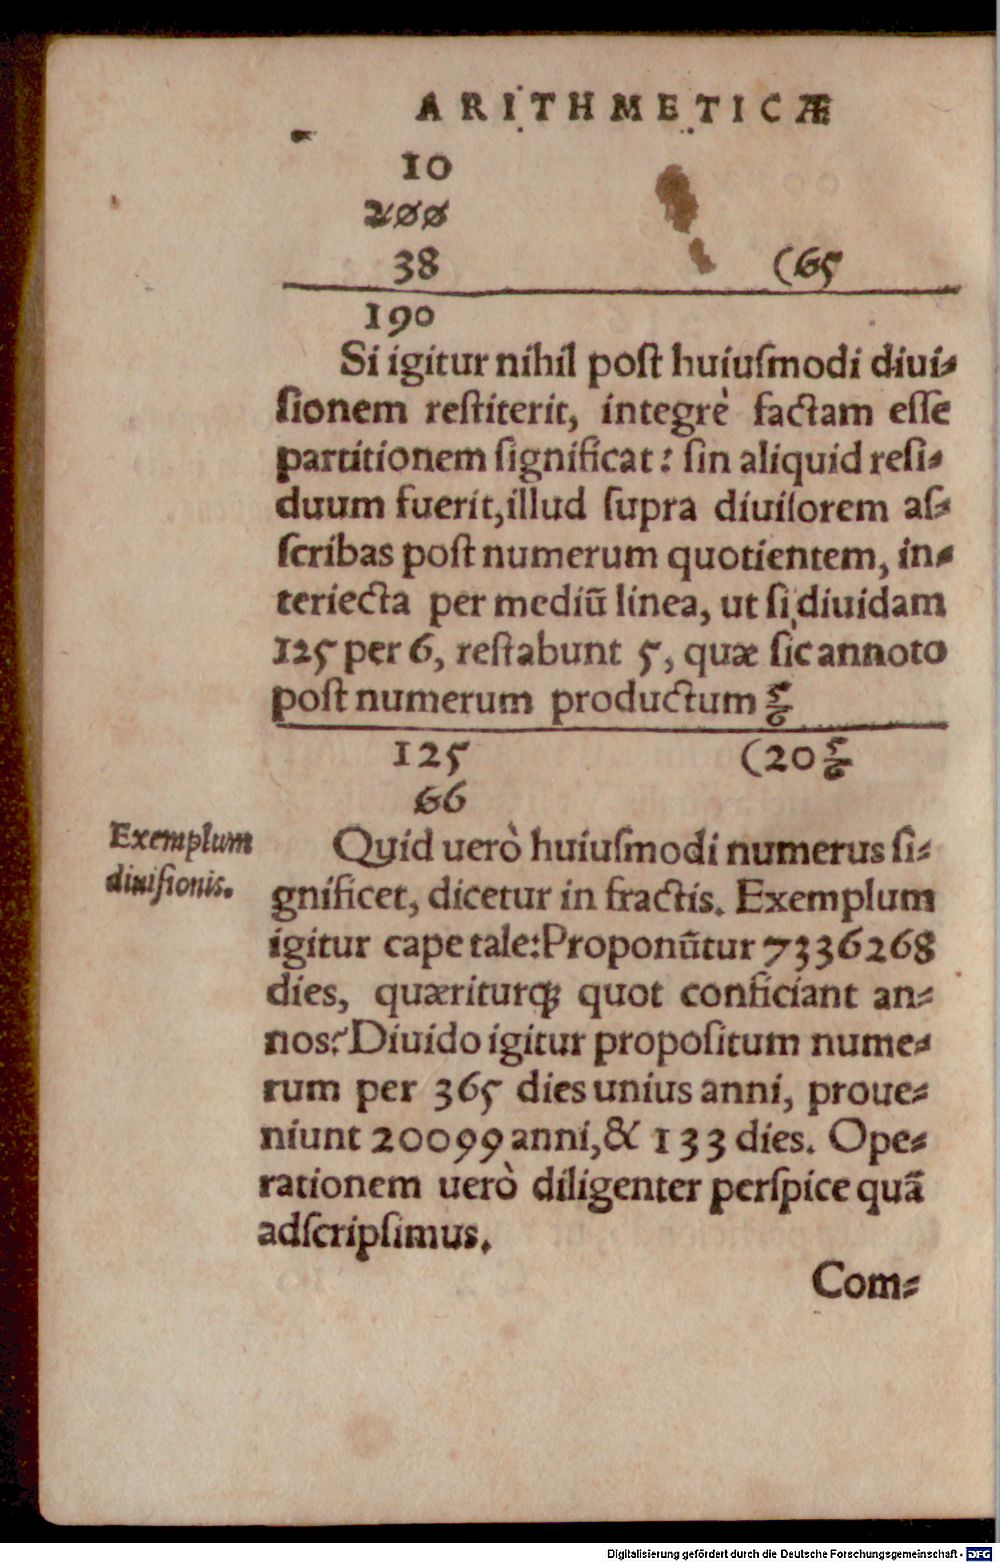 ARITHMETICÆ
10
200
38 (65
190
Si igitur nihil post huiuſmodi diui⸗
ſionem reſtiterit, integrè factam eſſe
partitionem ſignificat: ſin aliquid reſi⸗
duum fuerit, illud ſupra diuiſorem aſ⸗
ſcribas poſt numerum quotientem, in⸗
teriecta per mediũ linea, ut ſi diuidam
125 per 6, reſtabunt 5, quæ ſic annoto
poſt numerum productum 5/6
125 (20 5/6
66
Exemplum
diuiſionis.
Quid uerò huiuſmodi numerus ſi⸗
gnificet, dicetur in fractis. Exemplum
igitur cape tale: Proponũtur 7336268
dies, quæriturq́ꝫ quot conficiant an⸗
nos? Diuido igitur propoſitum nume⸗
rum per 365 dies unius anni, proue⸗
niunt 20099 anni, & 133 dies. Ope⸗
rationem uerò diligenter perſpice quã
adſcripſimus.
Com⸗
Digitalisierung gefördert durch die Deutsche Forschungsgemeinschaft - DFG